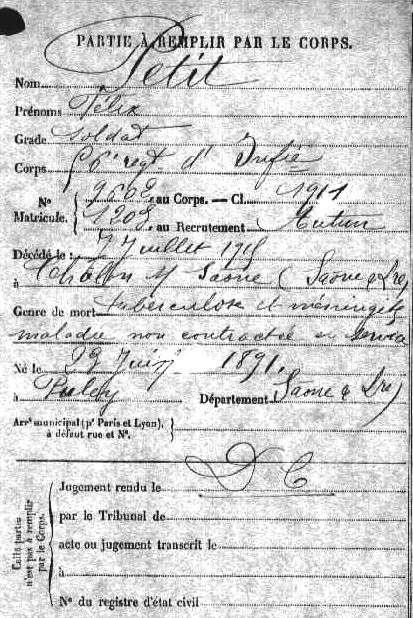 PARTIE À REMPLIR PAR LE CORPS.
Nom Petit
Prénoms Félix
Grade soldat
Corps 56e regt d' Infie
No Matricule. 9602 au Corps. — Cl. 1911
1202 au Recrutement Autun
Décédé le : 7 Juillet 1915
à Chalon s/ Saône (Saône & Lre)
Genre de mort tuberculose et méningite
maladie non contractée en service
Né le Juin 1891.
à Département Saône & Lre)
Arrt municipal (pr Paris et Lyon),
à défaut rue et No.
D C
Cette partie n'est pas à remplir par le Corps.
Jugement rendu le
par le Tribunal de
acte ou jugement transcrit le
à
No du registre d'état civil